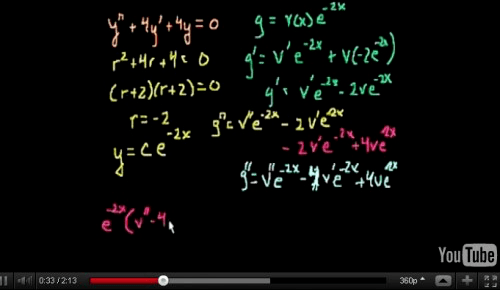 y" + 4y' + 4y = 0
r² + 4r + 4 = 0
(r+2)(r+2) = 0
r = -2
y = ce^-2x
g = v(x)e^-2x
g' = v'e^-2x + v(-2e^-2x)
g' = v'e^-2x - 2ve^-2x
g" = v"e^-2x - 2v'e^-2x
- 2v'e^-2x + 4ve^-2x
g" = v"e^-2x - 4v'e^-2x + 4ve^-2x
e^-2x (v" - 4
YouTube
0:33 / 2:13
360p